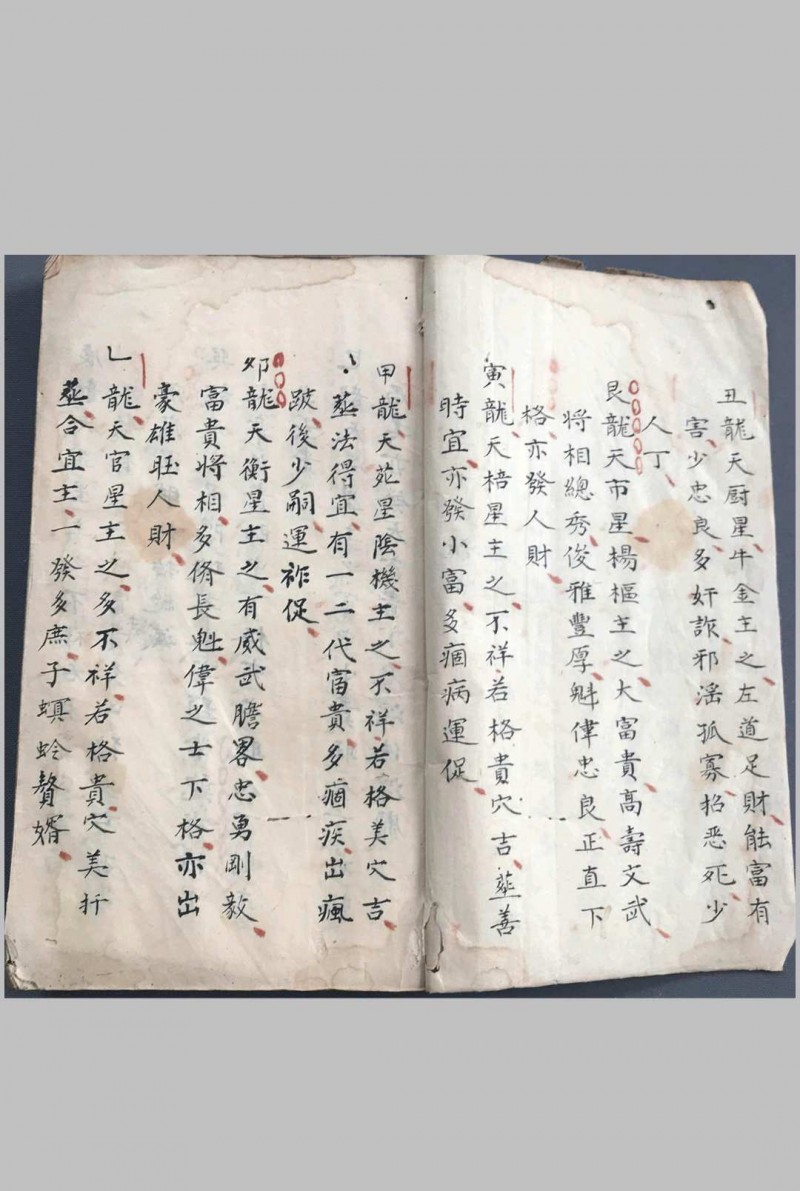 丑龍天厨星牛金主之左道足財能富有
害少忠良多奸詐邪滛孤寡招惡死少
人丁
艮龍天市星楊樞主之大富貴高壽文武
将相總秀俊雅豐厚魁偉忠良正直下
格亦發人財
寅龍天棓星主之不祥若格貴穴吉塟善
時宜亦發小富多痼病運促
甲龍天苑星陰機主之不祥若格美穴吉
塟法得宜有一二代富貴多痼疾出瘋
跛後少嗣運祚促
夘龍天衡星主之有威武膽畧忠勇剛毅
富貴將相多脩長魁偉之士下格亦出
豪雄旺人財
乙龍天官星主之多不祥若格貴穴美扦
塟合宜主一發多庶子螟蛉贅婿